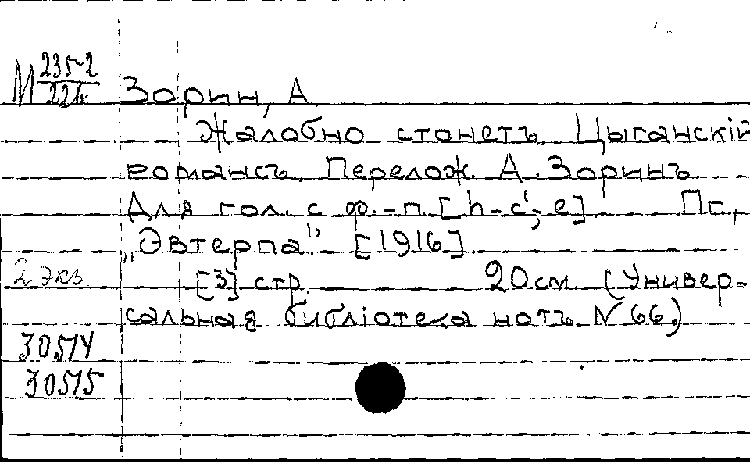 М 235-2
Зорин, А.
Жалобно стонетъ. Цыганскій
романсъ. Перелож. А. Зоринъ
Для гол. с ф.-п. [h-c¹; e] Пг.,
„Эвтерпа" [1916]
2 экз. [3] стр. 20 см. (Универ-
сальная библіотека нотъ. N 66.)
30514
30515